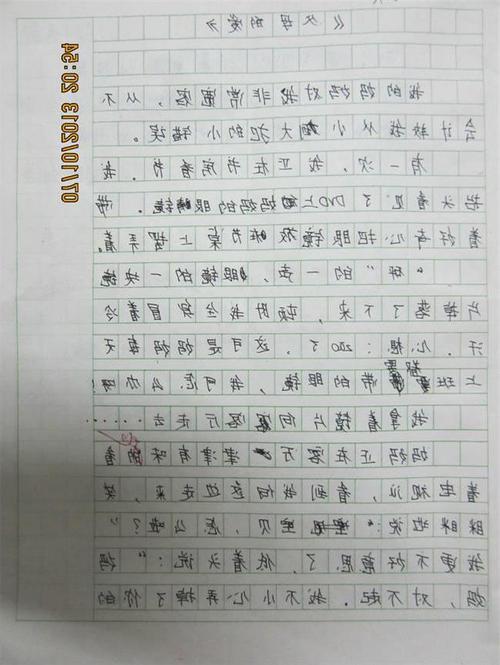 《父母的爱》
我的妈妈对我非常宽容，从不
会计较我从小到大犯的小错误。
有一次，我正在书房看书。我
抬头看见了DVD上妈妈的眼镜。带
着好奇心把眼镜放在书桌上摆弄着。
“砰”的一声，眼镜的一块镜
片掉落了下来，顿时我全身冒着冷
汗。心想：完了，这可是妈妈每天
上班都需带的眼镜，我可怎么办呀
我拿着镜片向客厅走去……
妈妈正在客厅津津有味的看
着电视，看到我向这边走来，笑
眯眯地说：“宝贝，怎么啦？”
我更不好意思了，低着头说：“妈
妈，对不起。我不小心弄掉了你的
07/01/2013 20:54